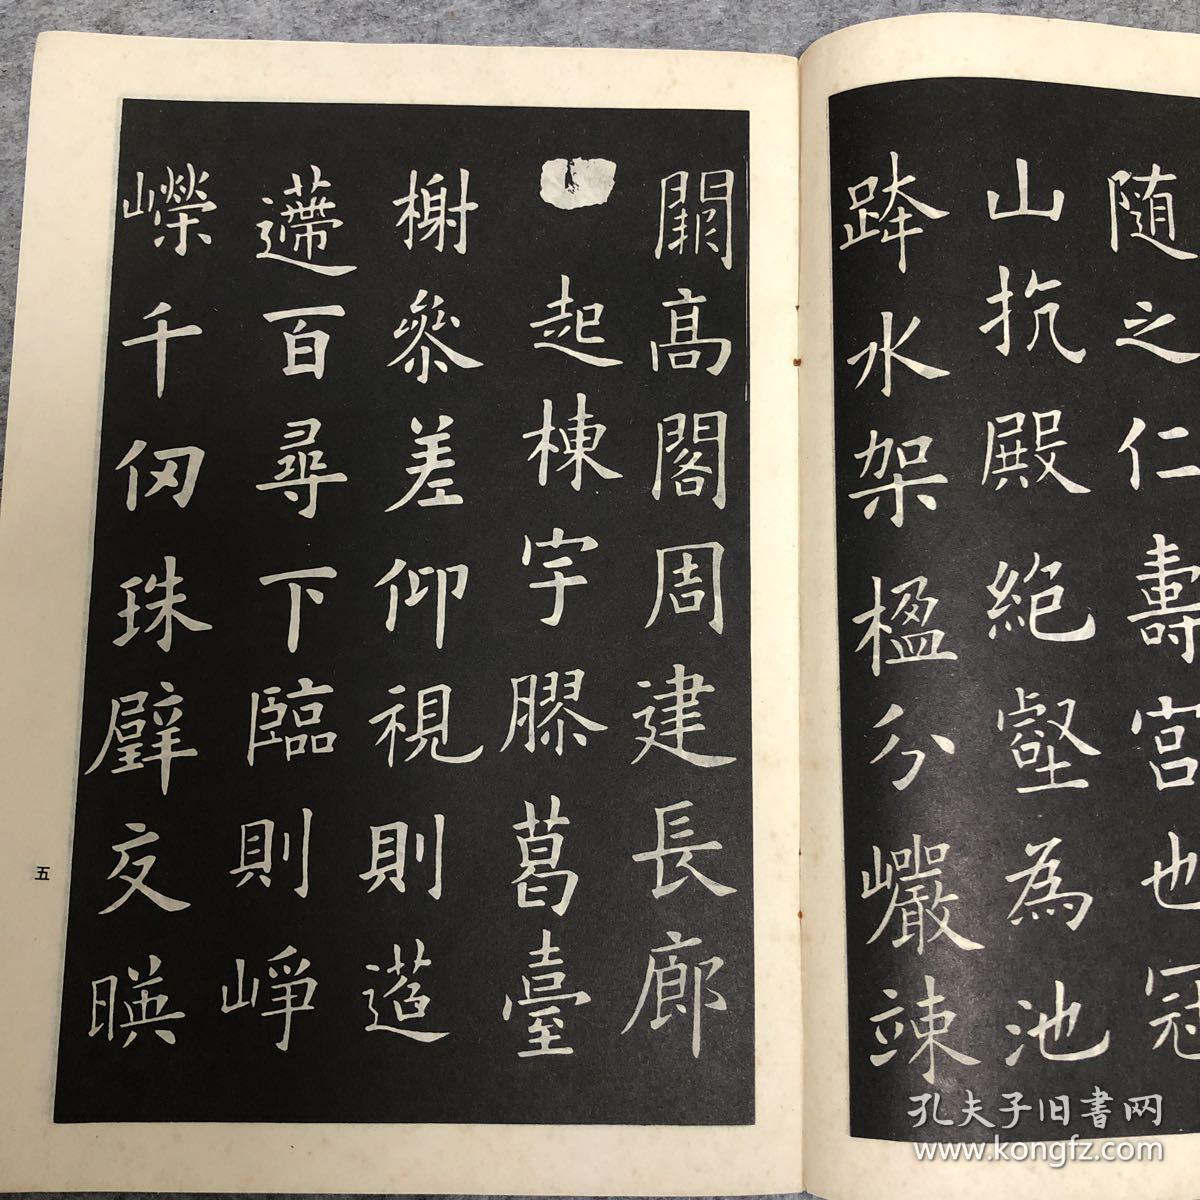 随之仁壽宫也冠
山抗殿絶壑為池
跨水架楹分巖竦
闕高閣周建長廊
起棟宇膠葛臺
榭參差仰視則迢
遰百尋下臨則崢
嶸千仞珠璧交暎
五
孔夫子旧書网
www.kongfz.com